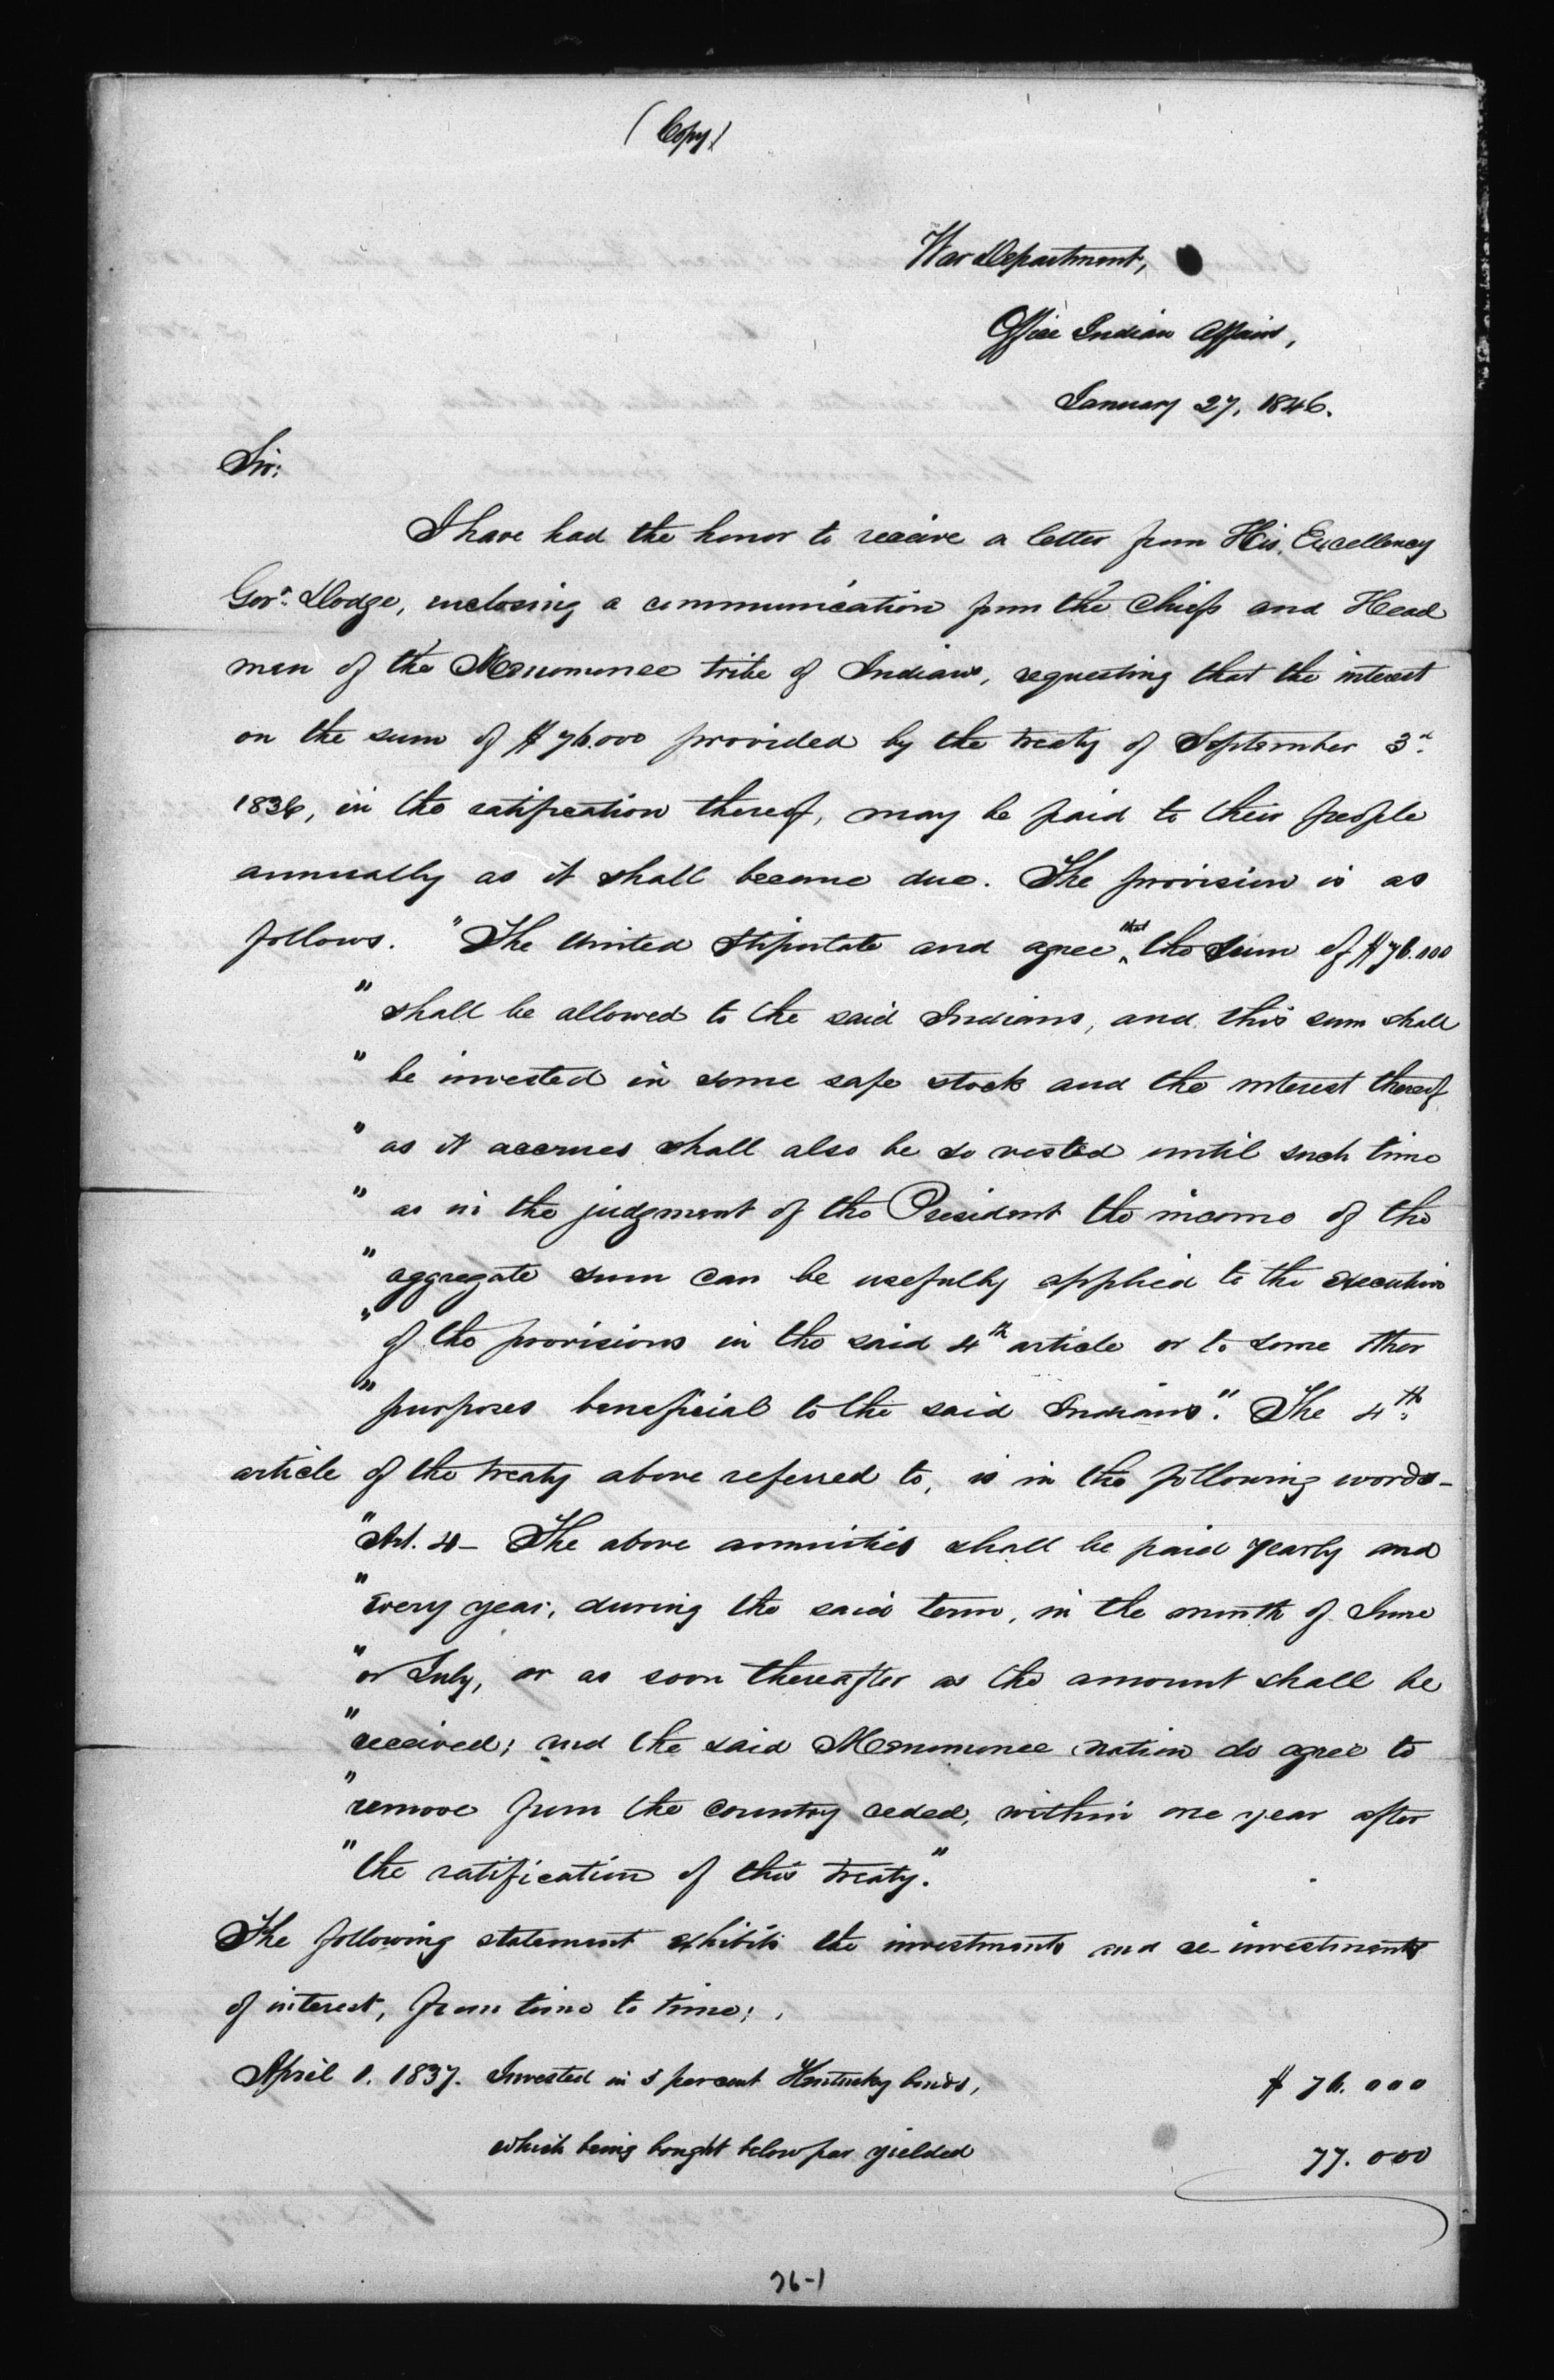 (Copy)
War Department,
Office Indian Affairs,
January 27, 1846.
Sir:
I have had the honor to receive a letter from His Excellency
Govr. Dodge, enclosing a communication from the Chiefs and Head
men of the Menomonee tribe of Indians, requesting that the interest
on the sum of $76.000 provided by the treaty of September 3d.
1836, in the ratification thereof, may be paid to their people
annually as it shall become due. The provision is as
follows. "The United Stipulate and agree that the sum of $76.000
" shall be allowed to the said Indians, and this sum shall
" be invested in some safe stock and the interest thereof
" as it accrues shall also be so vested until such time
" as in the judgment of the President the income of the
" aggregate sum can be usefully applied to the execution
" of the provisions in the said 4th article or to some other
" purposes beneficial to the said Indians". The 4th.
article of the treaty above referred to, is in the following words-
"Art. 4- The above annuities shall be paid yearly and
"every year, during the said term, in the month of June
"or July, or as soon thereafter as the amount shall be
"received; and the said Menomonee nation do agree to
"remove from the country ceded, within one year after
"the ratification of this treaty."
The following statement exhibits the investments and re-investments
of interest, from time to time;
April 1. 1837. Invested in 5 per cent Kentucky bonds, $ 76.000
which being bought below par yielded 77.000
76-1